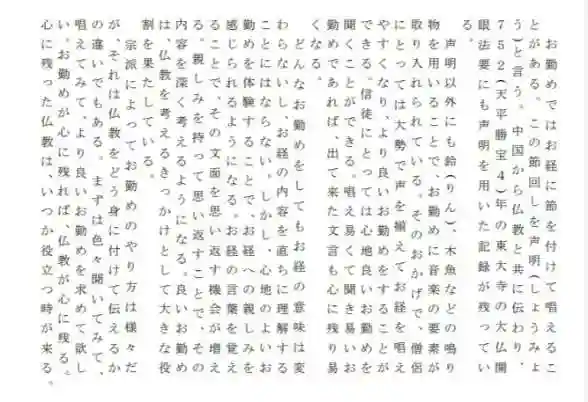 お勤めではお経に節を付けて唱えるこ
とがある。この節回しを声明(しょうみょ
う)と言う。中国から仏教と共に伝わり、
752(天平勝宝4)年の東大寺の大仏開
眼法要にも声明を用いた記録が残ってい
る。
　声明以外にも鈴(りん)、木魚などの鳴り
物を用いることで、お勤めに音楽の要素が
取り入れられている。そのおかげで、僧侶
にとっては大勢で声を揃えてお経を唱え
やすくなり、より良いお勤めをすることが
できる。信徒にとっては心地良いお勤めを
聞くことができる。唱え易くて聞き易いお
勤めであれば、出て来た文言も心に残り易
くなる。
　どんなお勤めをしてもお経の意味は変
わらないし、お経の内容を直ちに理解する
ことにはならない。しかし、心地のよいお
勤めを体験することで、お経への親しみを
感じられるようになる。お経の言葉を覚え
ることで、その文面を思い返す機会が増え
る。親しみを持って思い返すことで、その
内容を深く考えるようになる。良いお勤め
は、仏教を考えるきっかけとして大きな役
割を果たしている。
　宗派によってお勤めのやり方は様々だ
が、それは仏教をどう身に付けて伝えるか
の違いでもある。まずは色々聞いてみて、
唱えてみて、より良いお勤めを求めて欲し
い。お勤めが心に残れば、仏教が心に残る。
心に残った仏教は、いつか役立つ時が来る。